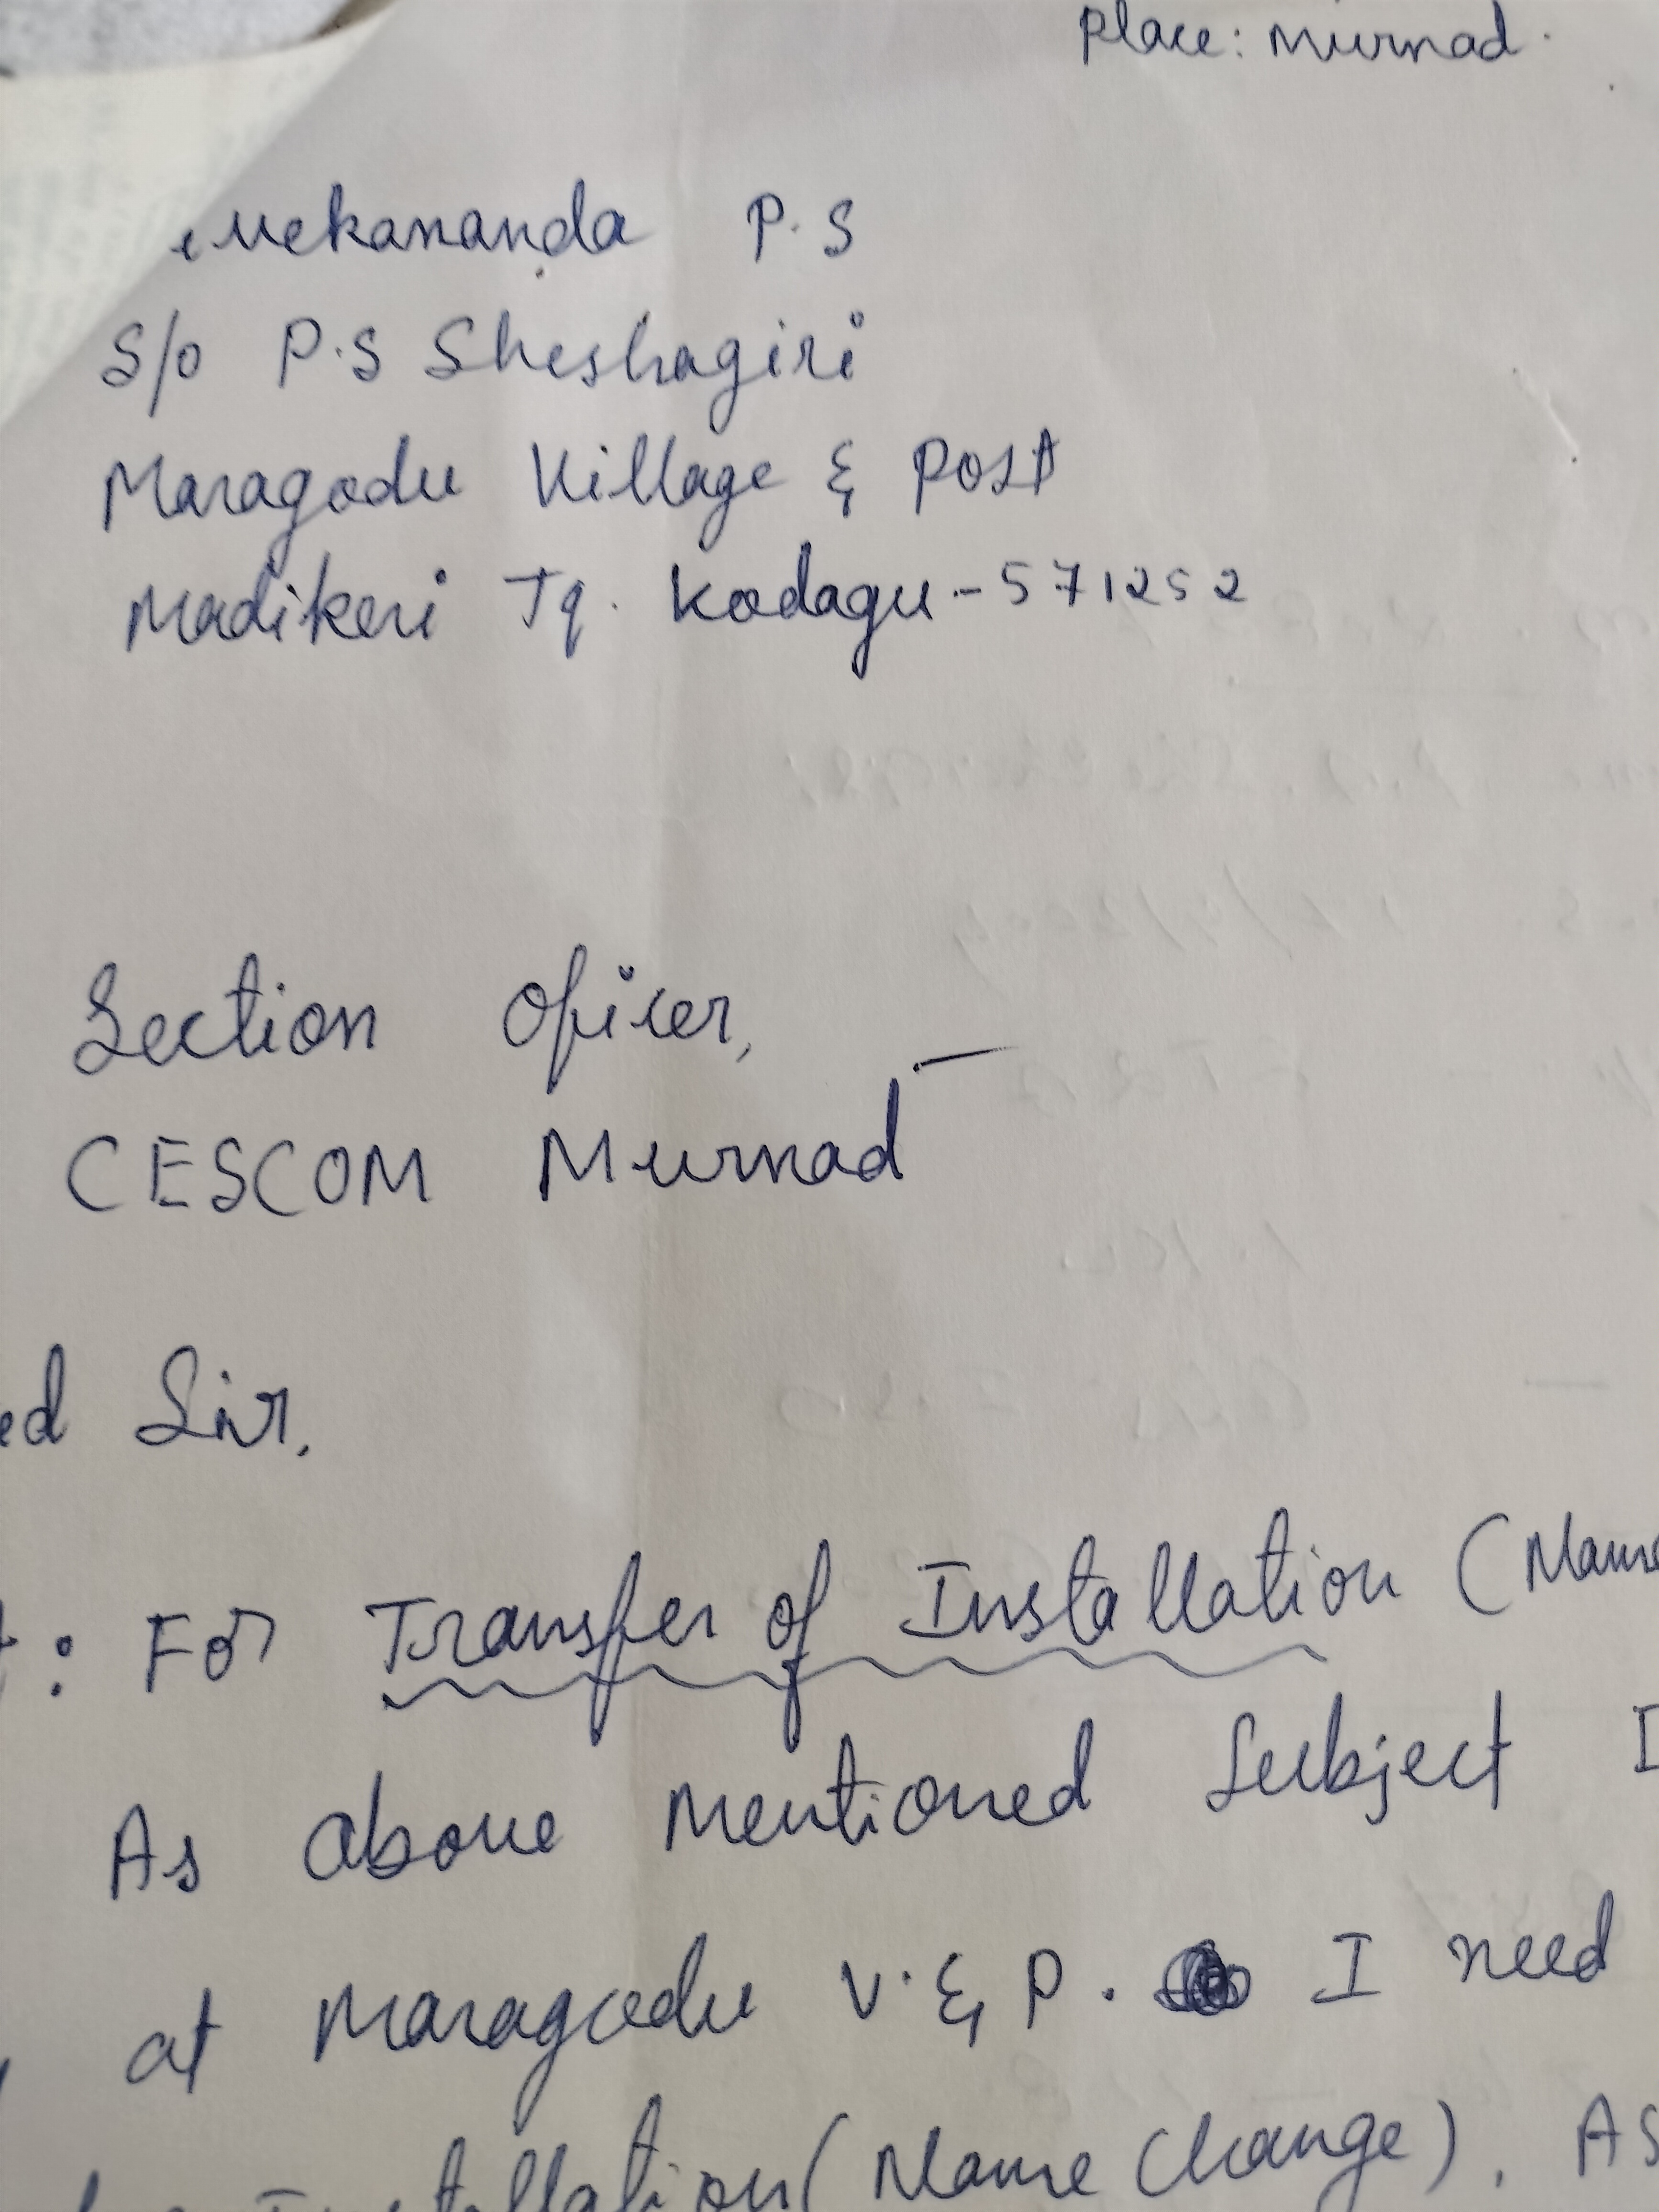 Place: Murnad.
Vivekananda P.S
S/o P.S Sheshagiri
Maragodu Village & Post
Madikeri Tq. Kodagu - 571252
Section Oficer,
CESCOM Murnad
ed Sir,
: For Transfer of Installation (Name
As above Mentioned Subject I
at Maragodu V. & P. I need
Installation (Name Change). As